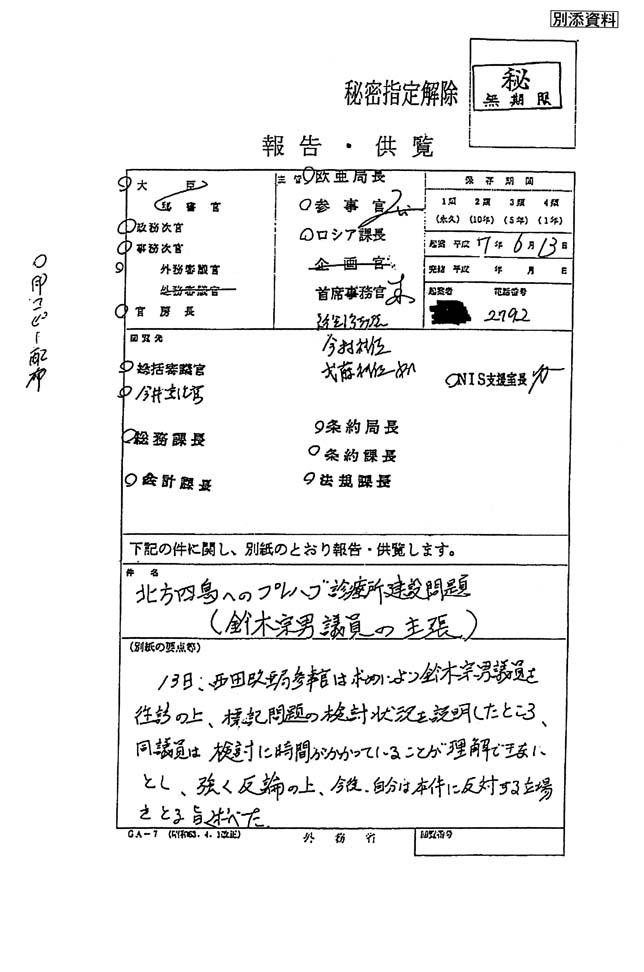 別添資料
秘
無期限
秘密指定解除
報告・供覧
大臣
秘書官
政務次官
事務次官
外務審議官
外務審議官
官房長
主管
欧亜局長
参事官
ロシア課長
企画官
首席事務官
保存期間
1類 2類 3類 4類
(永久) (10年) (5年) (1年)
起案 平成 7年 6月 13日
完結 平成 年 月 日
起案者 電話番号
2792
回覧先
総括審議官
総務課長
会計課長
条約局長
条約課長
法規課長
NIS支援室長
下記の件に関し、別紙のとおり報告・供覧します。
件名
北方四島へのプレハブ診療所建設問題
(鈴木宗男議員の主張)
(別紙の要点等)
13日、西田欧亜局参事官は求めにより鈴木宗男議員を
往訪の上、標記問題の検討状況を説明したところ、
同議員は検討に時間がかかっていることが理解できない
とし、強く反論の上、今後、自分は本件に反対する立場
をとる旨述べた。
GA-7 (昭和63.4.1改正)
外務省
回覧番号